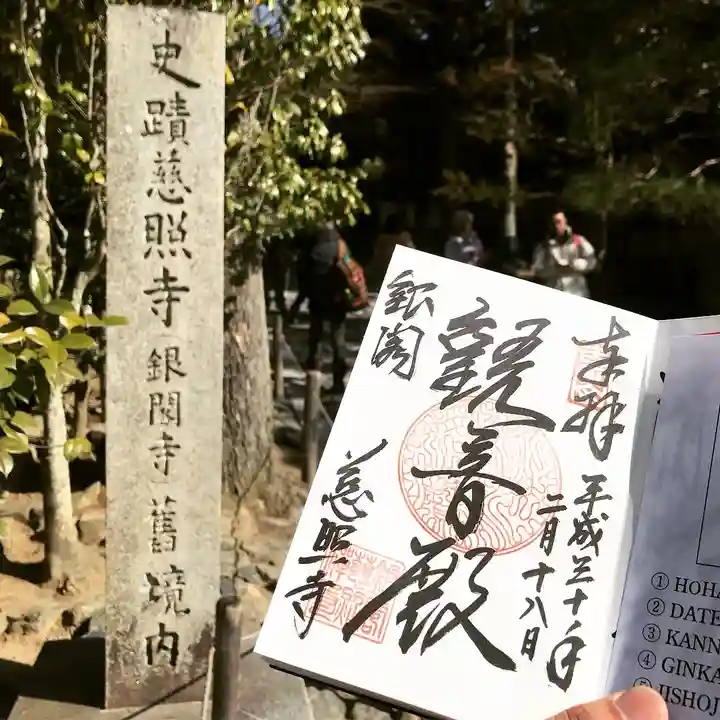 史蹟慈照寺(銀閣寺)舊境内
奉拝
平成三十年
二月十八日
観音殿
銀閣
慈照寺
① HOHA
② DATE
③ KANN
④ GINKA
⑤ JISHOJ